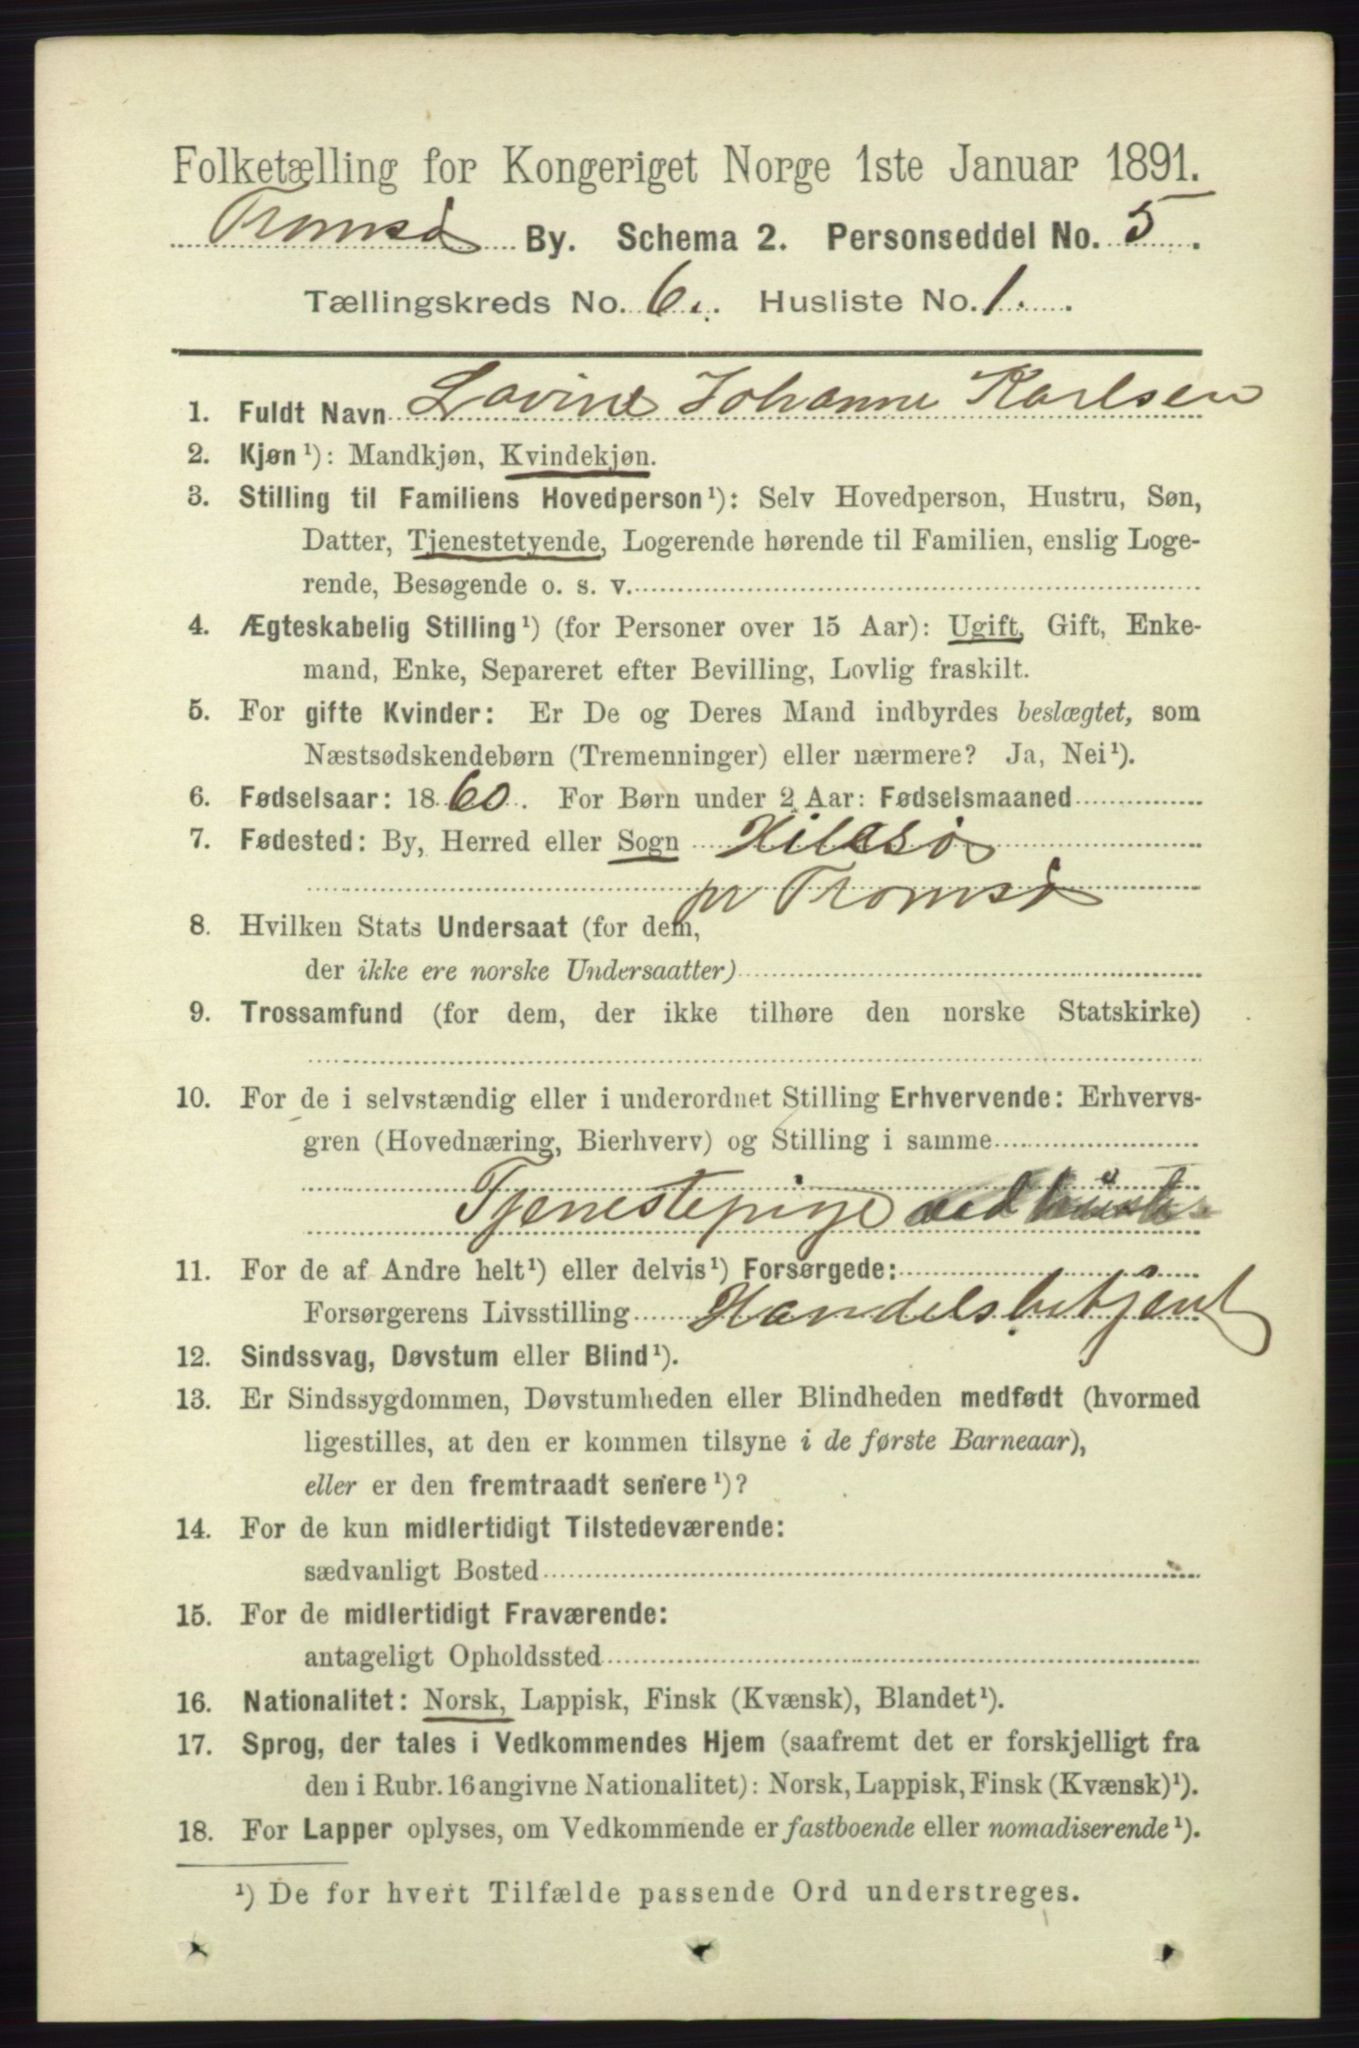 Folketælling for Kongeriget Norge 1ste Januar 1891.
Tromsø By. Schema 2. Personseddel No. 5.
Tællingskreds No. 6. Husliste No. 1.
1. Fuldt Navn Lovine Johanne Karlsen
2. Kjøn¹): Mandkjøn, Kvindekjøn.
3. Stilling til Familiens Hovedperson¹): Selv Hovedperson, Hustru, Søn,
Datter, Tjenestetyende, Logerende hørende til Familien, enslig Loge-
rende, Besøgende o. s. v.
4. Ægteskabelig Stilling¹) (for Personer over 15 Aar): Ugift, Gift, Enke-
mand, Enke, Separeret efter Bevilling, Lovlig fraskilt.
5. For gifte Kvinder: Er De og Deres Mand indbyrdes beslægtet, som
Næstsødskendebørn (Tremenninger) eller nærmere? Ja, Nei¹).
6. Fødselsaar: 1860. For Børn under 2 Aar: Fødselsmaaned
7. Fødested: By, Herred eller Sogn
pr Tromsø
8. Hvilken Stats Undersaat (for dem,
der ikke ere norske Undersaatter)
9. Trossamfund (for dem, der ikke tilhøre den norske Statskirke)
10. For de i selvstændig eller i underordnet Stilling Erhvervende: Erhvervs-
gren (Hovednæring, Bierhverv) og Stilling i samme
Tjenestepige ved
11. For de af Andre helt¹) eller delvis¹) Forsørgede:
Forsørgerens Livsstilling Handelsbetjent
12. Sindssvag, Døvstum eller Blind¹).
13. Er Sindssygdommen, Døvstumheden eller Blindheden medfødt (hvormed
ligestilles, at den er kommen tilsyne i de første Barneaar),
eller er den fremtraadt senere¹)?
14. For de kun midlertidigt Tilstedeværende:
sædvanligt Bosted
15. For de midlertidigt Fraværende:
antageligt Opholdssted
16. Nationalitet: Norsk, Lappisk, Finsk (Kvænsk), Blandet¹).
17. Sprog, der tales i Vedkommendes Hjem (saafremt det er forskjelligt fra
den i Rubr. 16 angivne Nationalitet): Norsk, Lappisk, Finsk (Kvænsk)¹).
18. For Lapper oplyses, om Vedkommende er fastboende eller nomadiserende¹).
¹) De for hvert Tilfælde passende Ord understreges.